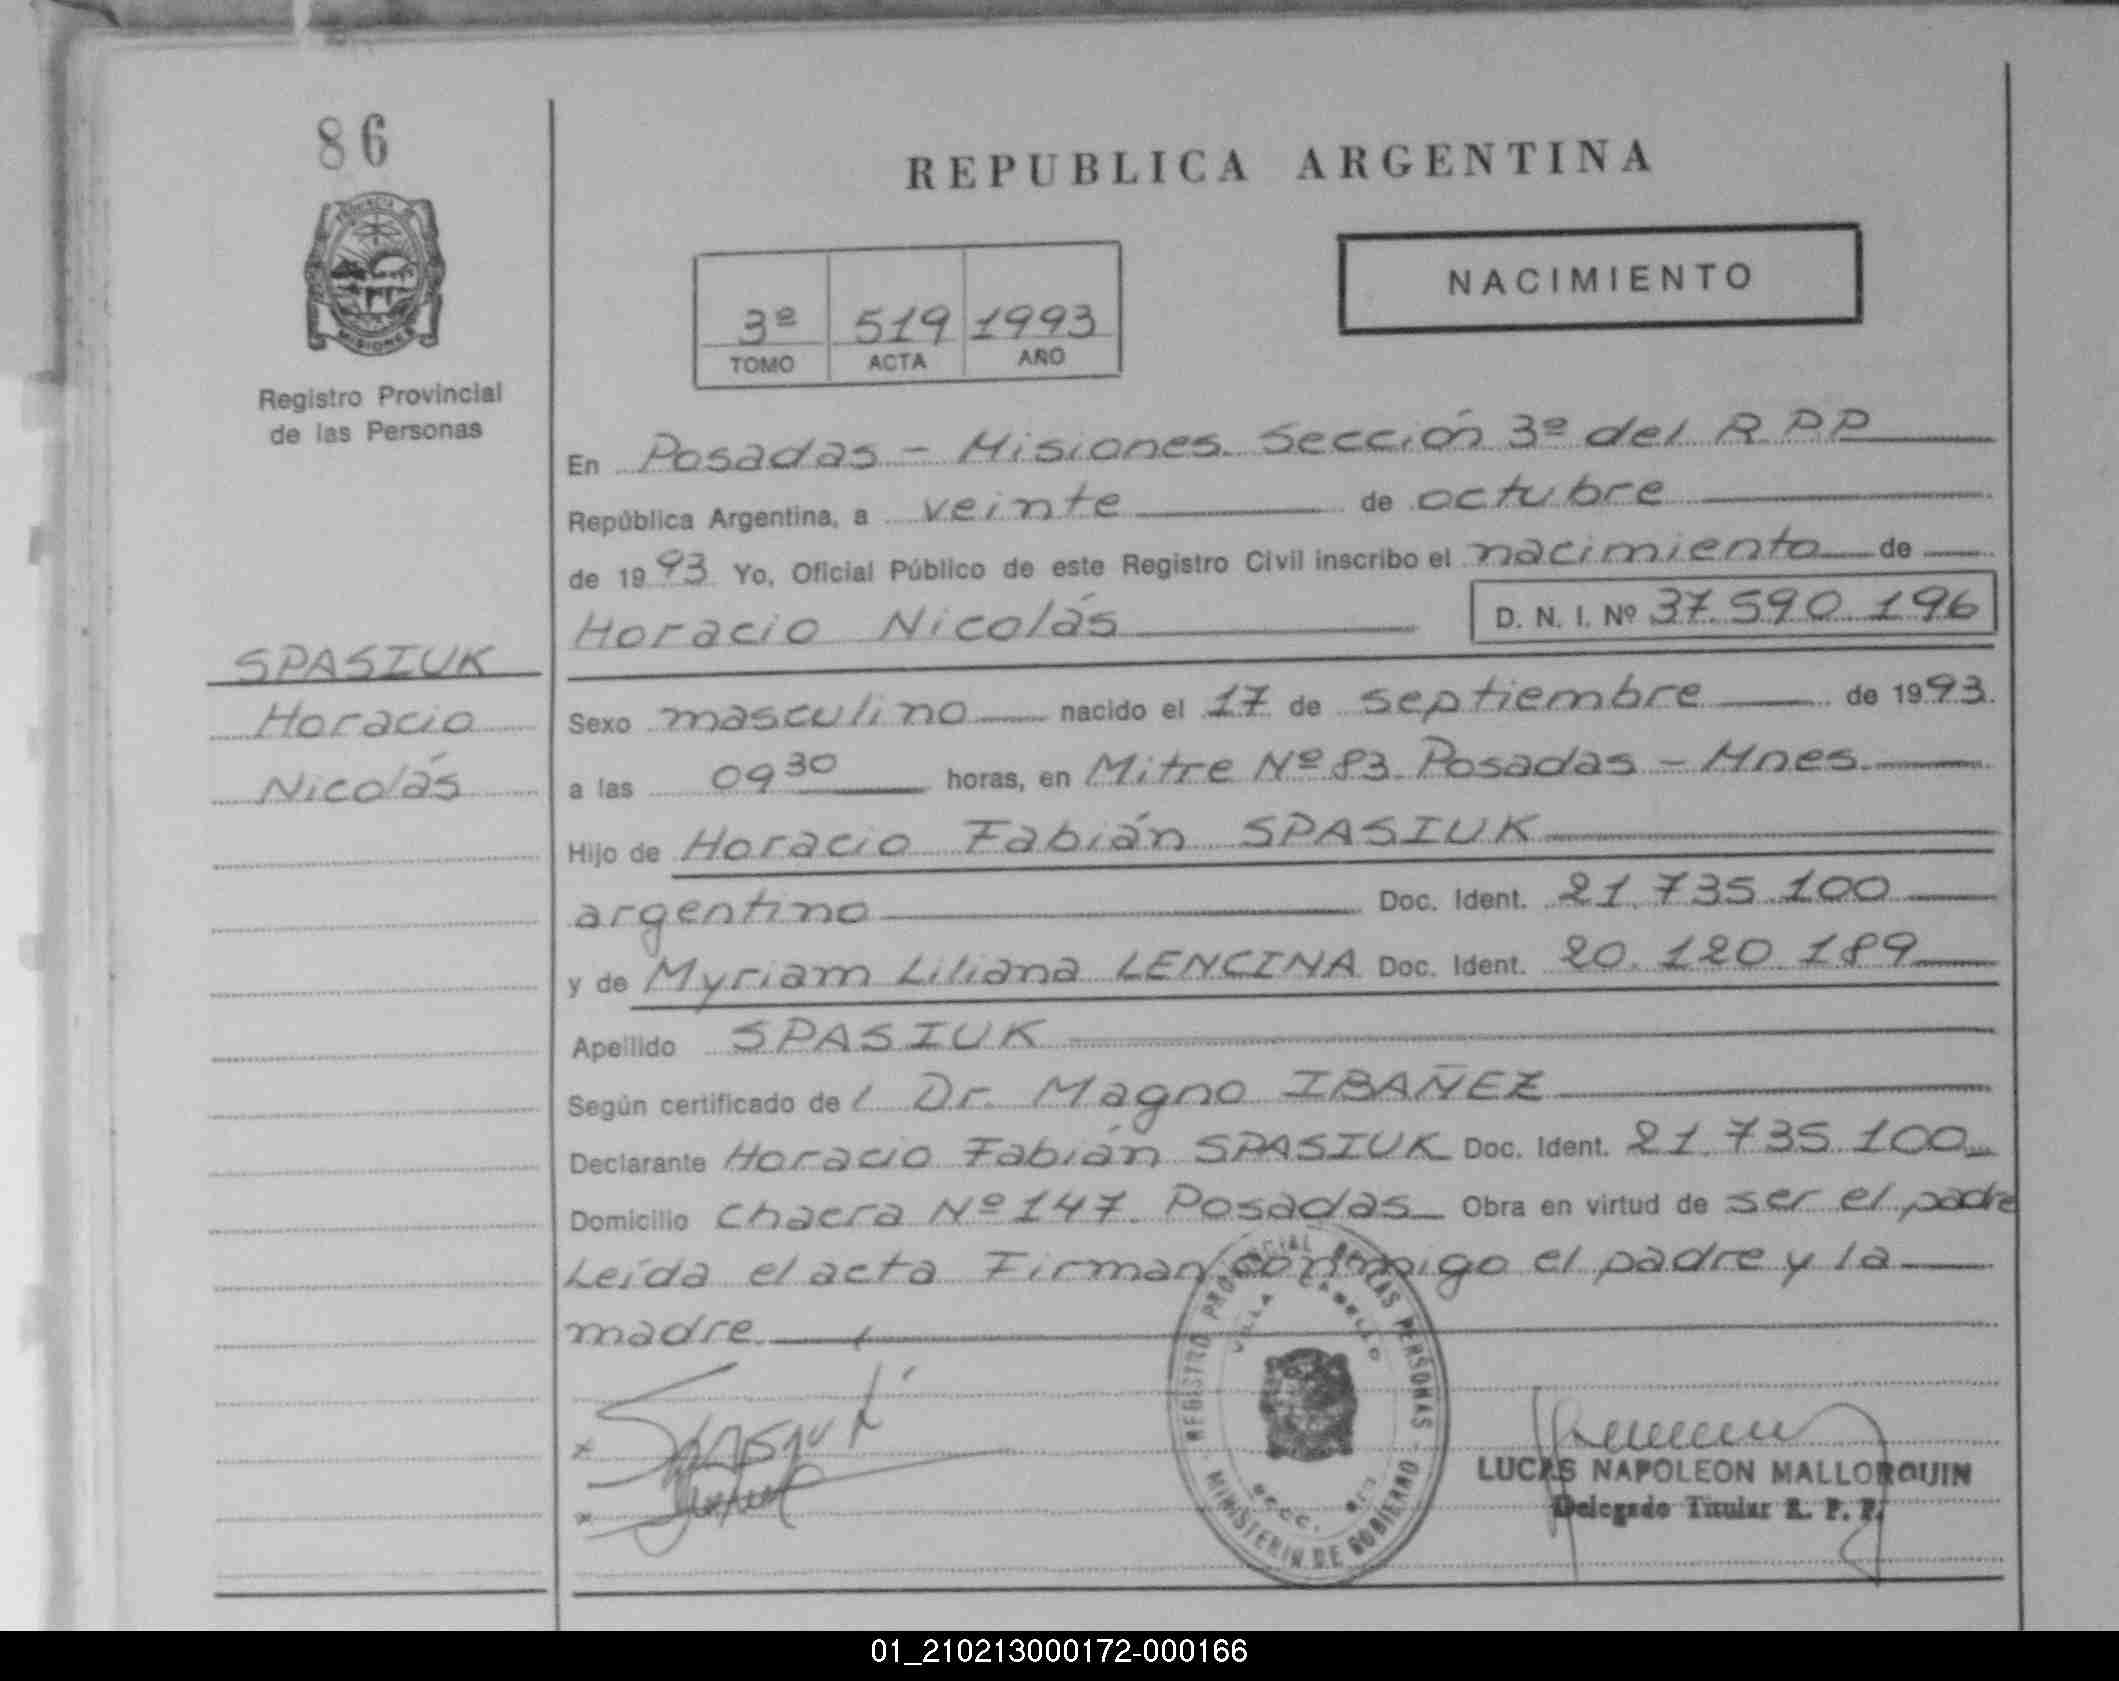 86
REPUBLICA ARGENTINA
PROVINCIA DE
MISIONES
NACIMIENTO
3º 519 1993
TOMO ACTA AÑO
Registro Provincial
de las Personas
En Posadas - Misiones. Sección 3º del R P P
República Argentina, a veinte de octubre
de 1993 Yo, Oficial Público de este Registro Civil inscribo el nacimiento de
Horacio Nicolás D. N. I. Nº 37.590.196
SPASIUK
Horacio
Nicolás
Sexo masculino nacido el 17 de septiembre de 1993.
a las 09 30 horas, en Mitre Nº 83. Posadas - Mnes.
Hijo de Horacio Fabián SPASIUK
argentino Doc. Ident. 21.735.100
y de Myriam Liliana LENCINA Doc. Ident. 20.120.189
Apellido SPASIUK
Según certificado del Dr. Magno IBAÑEZ
Declarante Horacio Fabián SPASIUK Doc. Ident. 21.735.100
Domicilio chacra Nº 147. Posadas Obra en virtud de ser el padre
Leída el acta Firman conmigo el padre y la
madre
REGISTRO PROVINCIAL DE LAS PERSONAS
VILLA CABELLO
SECC.
MINISTERIO DE GOBIERNO
LUCAS NAPOLEON MALLORQUIN
Delegado Titular R. P. P.
01_210213000172-000166